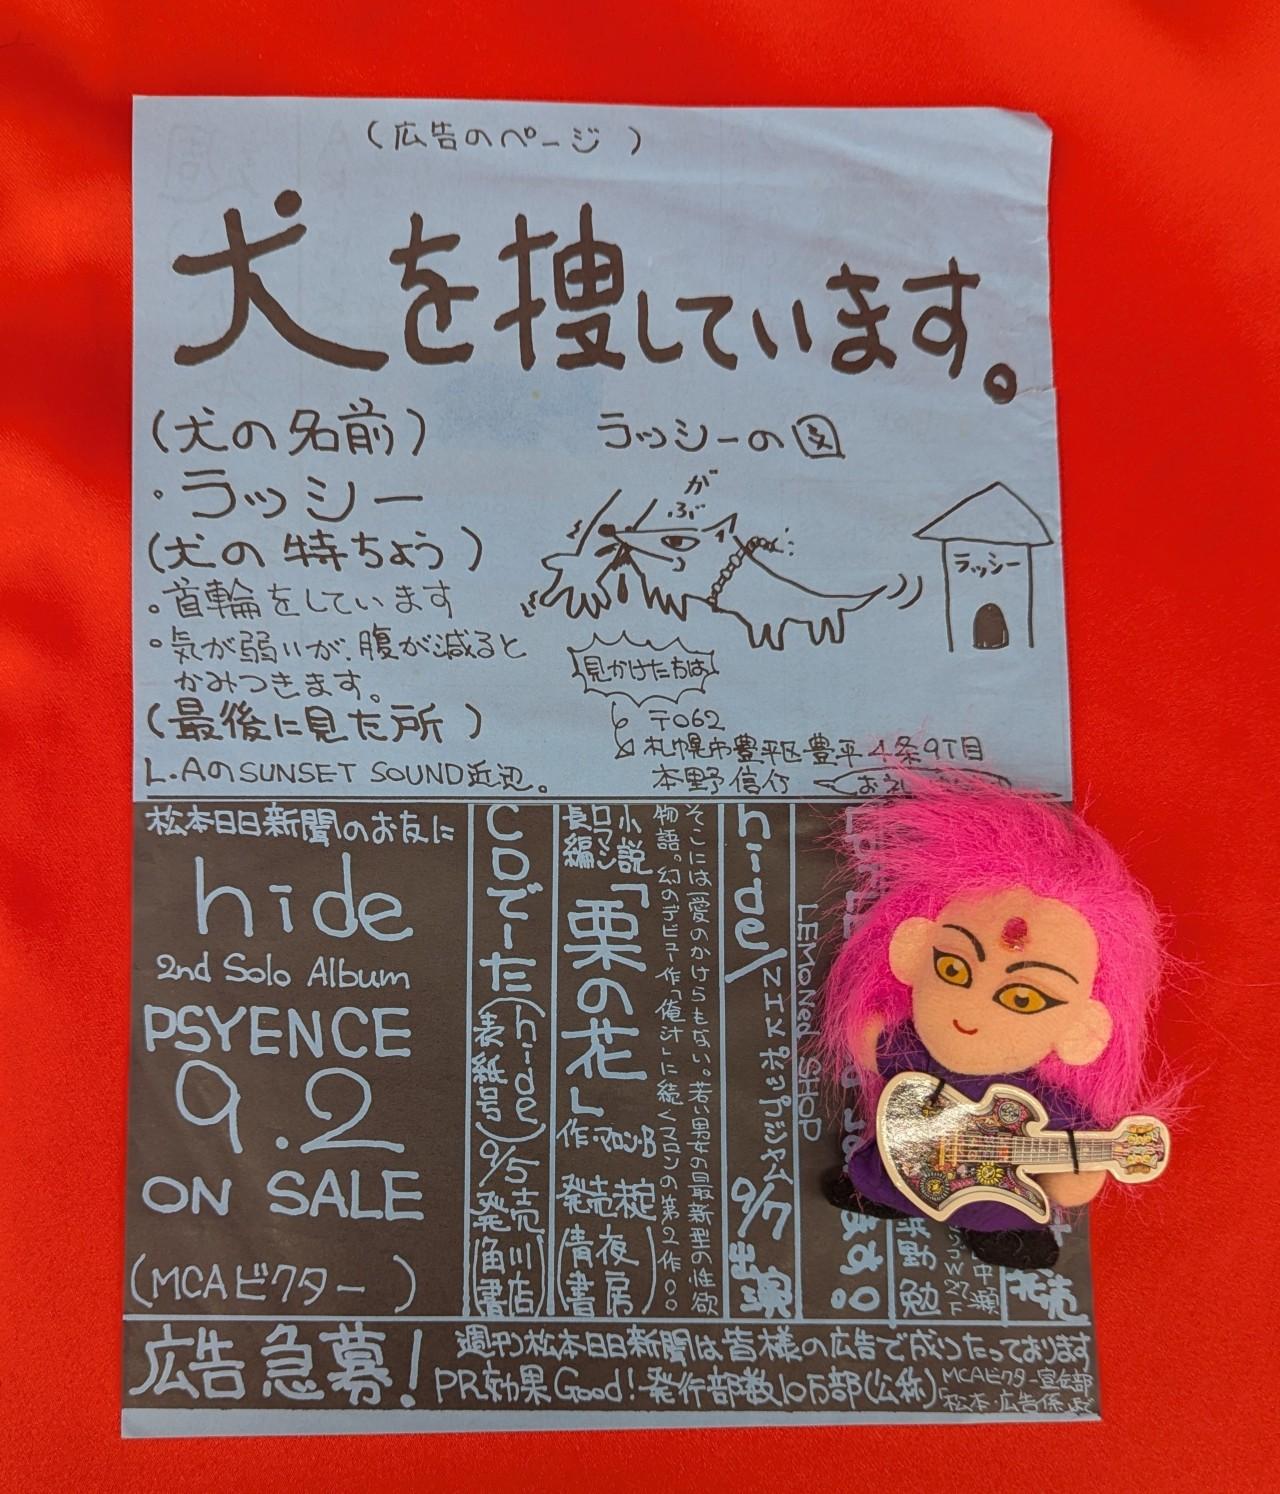 （広告のページ）
犬を捜しています。
（犬の名前）
・ラッシー
（犬の特ちょう）
。首輪をしています
。気が弱いが、腹が減ると
かみつきます。
（最後に見た所）
L.AのSUNSET SOUND近辺。
ラッシーの図
がぶ
ラッシー
見かけた方は
〒062
札幌市豊平区豊平4条9丁目
本野信行
松本日日新聞のお友に
hide
2nd Solo Album
PSYENCE
9.2
ON SALE
（MCAビクター）
CDでーた（hide表紙号）9/5発売（角川書店）
長編ロマン小説
「栗の花」作・マロン・B 発売 （青夜書房）
そこには愛のかけらもない。若い男女の最新型の性欲
物語。幻のデビュー作「俺汁」に続くマロンの第2作。。
hide/NHKポップジャム9/7出演
LEMONed SHOP
浜野勉
中瀬
27F
発売
広告急募！
週刊松本日日新聞は皆様の広告で成りたっております
PR効果Good！発行部数10万部（公称）
MCAビクター宣伝部
松本・広告係